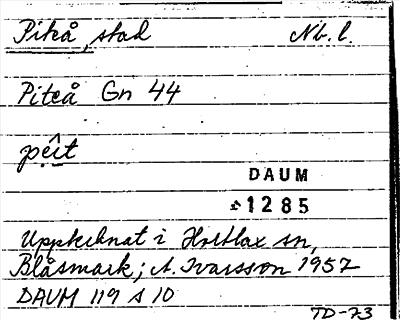 Piteå, stad Nb. l.
Piteå Gn 44
pêi̭t
DAUM
1285
Upptecknat i Hortlax sn,
Blåsmark; A. Ivarsson 1957
DAUM 119 s 10
TD-73